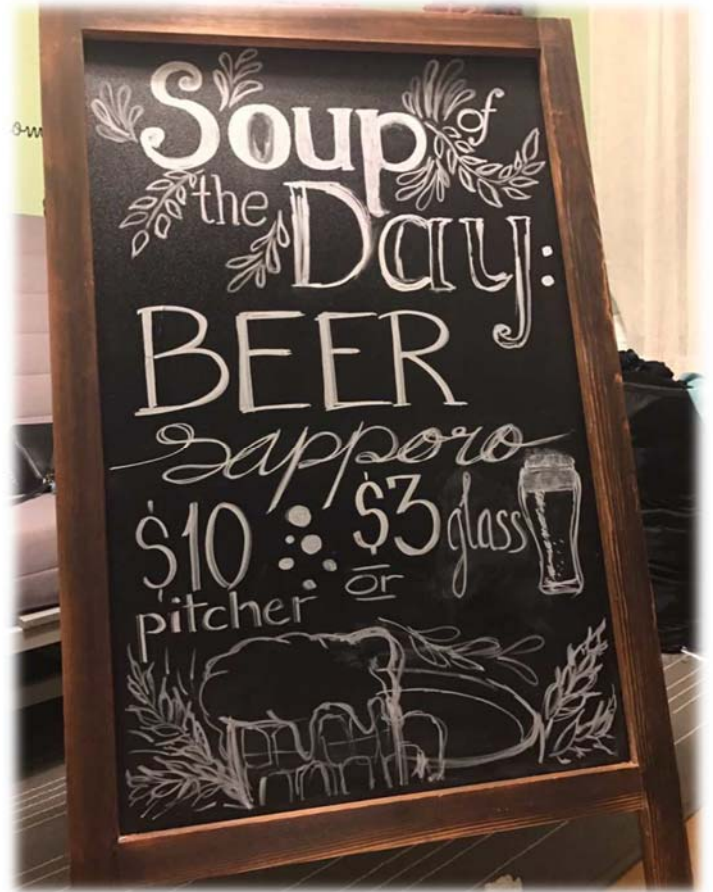 Soup of
the Day:
BEER
sapporo
$10 pitcher
or
$3 glass